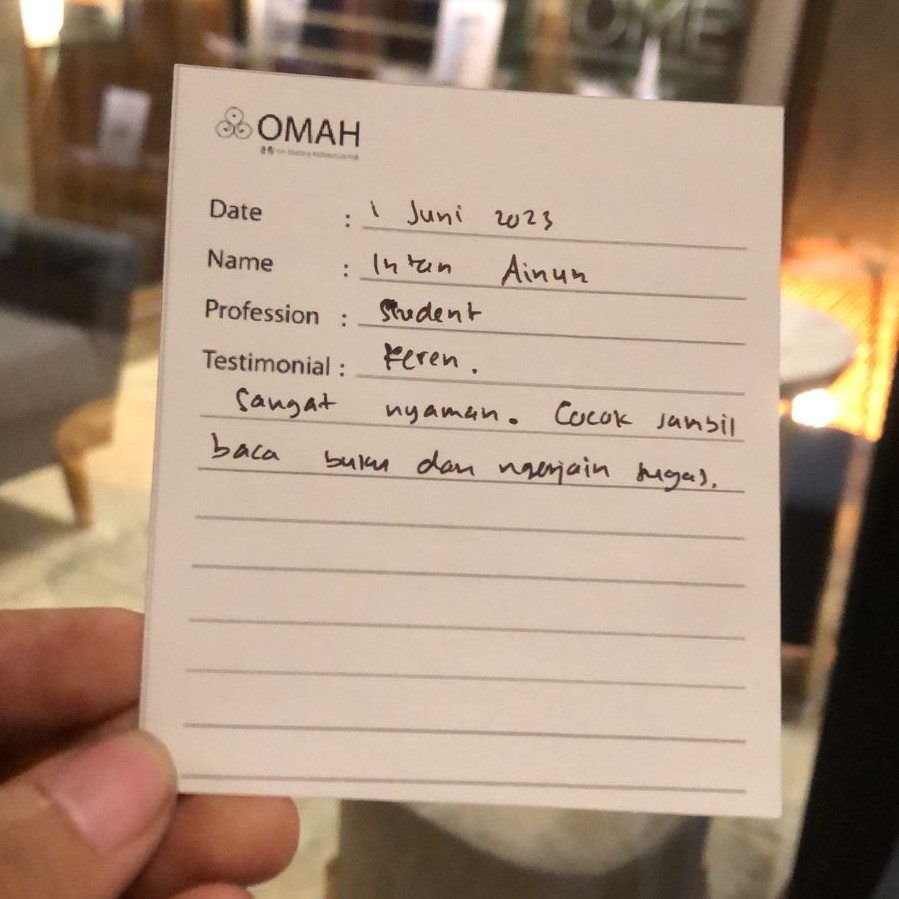 OME
OMAH
Date : 1 Juni 2023
Name : Intan Ainun
Profession : Student
Testimonial : Keren.
Sangat nyaman. Cocok sambil
baca buku dan ngerjain tugas.